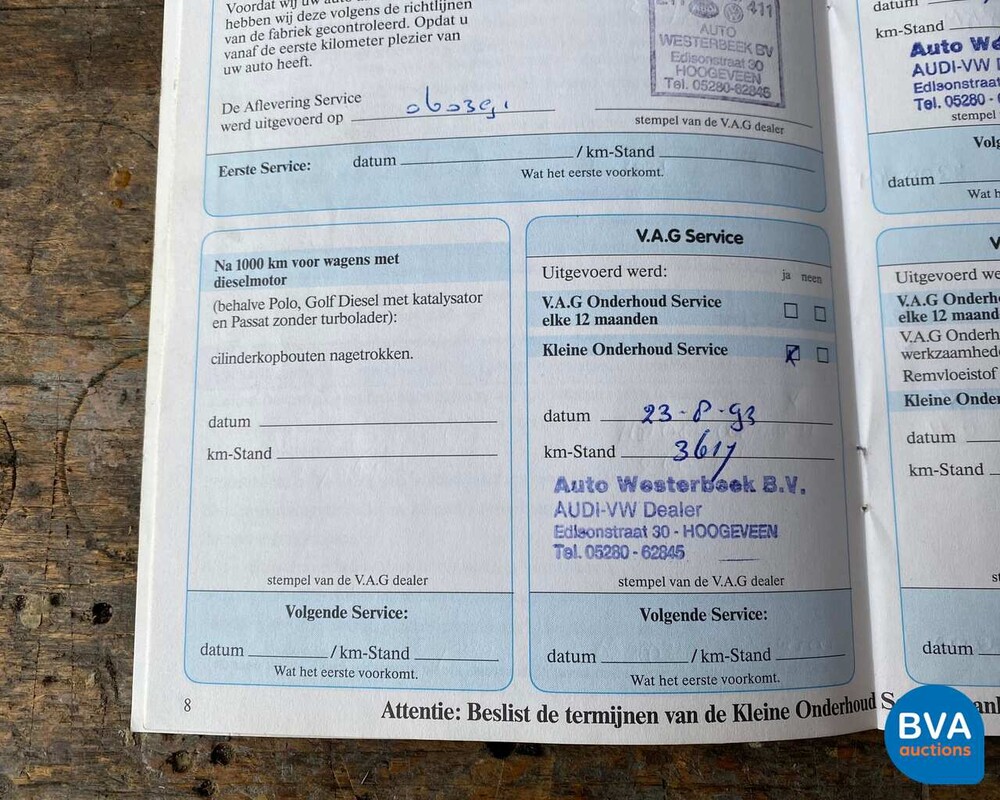 Voordat wij uw auto
hebben wij deze volgens de richtlijnen
van de fabriek gecontroleerd. Opdat u
vanaf de eerste kilometer plezier van
uw auto heeft.
411
AUTO
WESTERBEEK BV
Edisonstraat 30
HOOGEVEEN
Tel. 05280-62845
De Aflevering Service
werd uitgevoerd op
stempel van de V.A.G dealer
Eerste Service: datum / km-Stand
Wat het eerste voorkomt.
Na 1000 km voor wagens met
dieselmotor
(behalve Polo, Golf Diesel met katalysator
en Passat zonder turbolader):
cilinderkopbouten nagetrokken.
datum
km-Stand
stempel van de V.A.G dealer
Volgende Service:
datum / km-Stand
Wat het eerste voorkomt.
V.A.G Service
Uitgevoerd werd: ja neen
V.A.G Onderhoud Service
elke 12 maanden
Kleine Onderhoud Service
datum 23-8-93
km-Stand 3617
Auto Westerbeek B.V.
AUDI-VW Dealer
Edisonstraat 30 - HOOGEVEEN
Tel. 05280 - 62845
stempel van de V.A.G dealer
Volgende Service:
datum / km-Stand
Wat het eerste voorkomt.
8
Attentie: Beslist de termijnen van de Kleine Onderhoud
datum
km-Stand
Auto
AUDI-VW
Edisonstraat
Tel. 05280 -
stempel
datum
Wat
Uitgevoerd
V.A.G
elke 12
V.A.G
Remvloeistof
Kleine
datum
km-Stand
datum
BVA
auctions